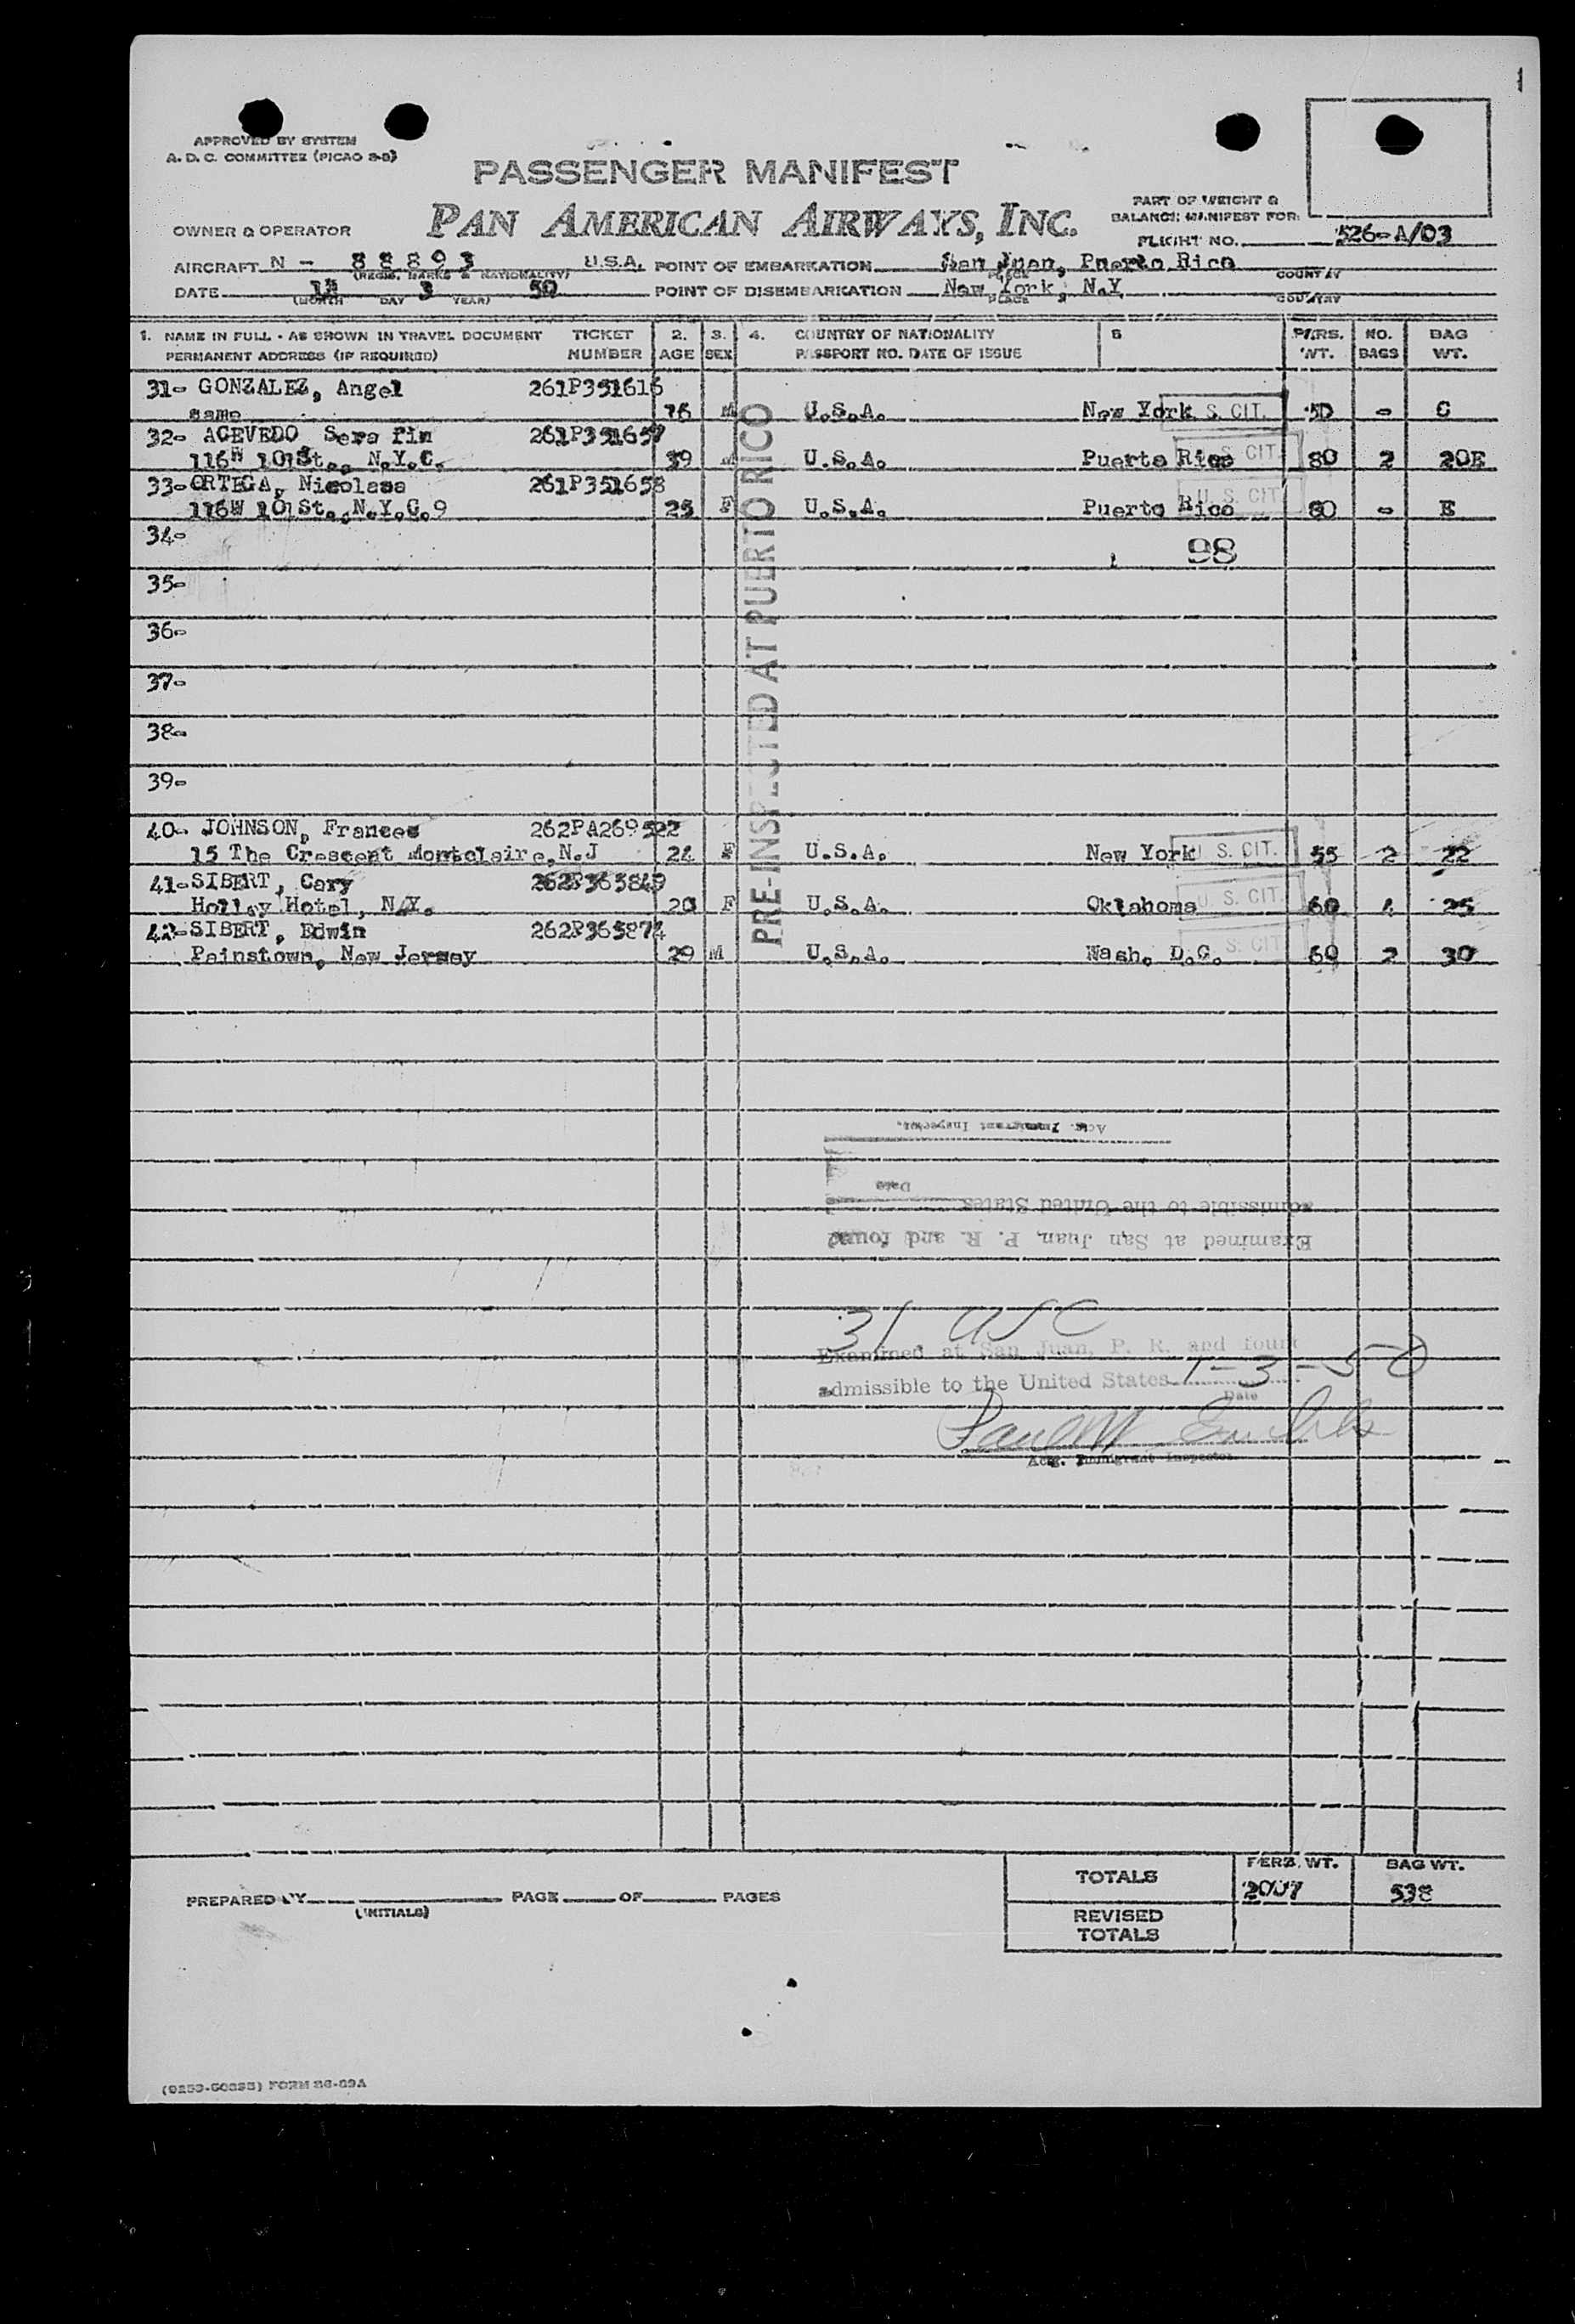 1
APPROVED BY SYSTEM
A. D. C. COMMITTEE (PICAO 2-3)
PASSENGER MANIFEST
PART OF WEIGHT &
BALANCE MANIFEST FOR:
OWNER & OPERATOR PAN AMERICAN AIRWAYS, INC.
FLIGHT NO. 526-A/03
AIRCRAFT N - 88893 U.S.A. POINT OF EMBARKATION San Juan, Puerto Rico
(REGIS. MARKS & NATIONALITY) PLACE COUNTRY
DATE 3 50 POINT OF DISEMBARKATION New York, N.Y
(MONTH DAY YEAR) PLACE COUNTRY
1. NAME IN FULL - AS SHOWN IN TRAVEL DOCUMENT TICKET 2. 3. 4. COUNTRY OF NATIONALITY 5 PERS. NO. BAG
PERMANENT ADDRESS (IF REQUIRED) NUMBER AGE SEX PASSPORT NO. DATE OF ISSUE WT. BAGS WT.
31- GONZALEZ, Angel 261P351616
same 16 M U.S.A. New York U. S. CIT. 50 - C
32- ACEVEDO Sera fin 261P351657
116W 101St., N.Y.C. 39 M U.S.A. Puerto Rico U. S. CIT. 80 2 20E
33- ORTEGA, Nicolasa 261P351658
116W 101St., N.Y.C. 9 25 F U.S.A. Puerto Rico U. S. CIT. 80 - E
34- 98
35-
36-
37-
38-
39-
PRE-INSPECTED AT PUERTO RICO
40- JOHNSON, Frances 262PA269522
15 The Crescent Montclaire, N.J 24 F U.S.A. New York U. S. CIT. 55 2 22
41- SIBERT, Cary 262P365849
Holley Hotel, N.Y. 20 F U.S.A. Oklahoma U. S. CIT. 60 4 25
42- SIBERT, Edwin 262P365874
Painstown, New Jersey 29 M U.S.A. Wash. D.C. U. S. CIT. 60 2 30
Actg. Immigrant Inspector.
Date
admissible to the United States
Examined at San Juan, P. R. and found
31 USC
Examined at San Juan, P. R. and found
admissible to the United States 1-3-50
Date
Actg. Immigrant Inspector
TOTALS PERS. WT. BAG WT.
2007 538
PREPARED BY PAGE OF PAGES
(INITIALS)
REVISED
TOTALS
FORM